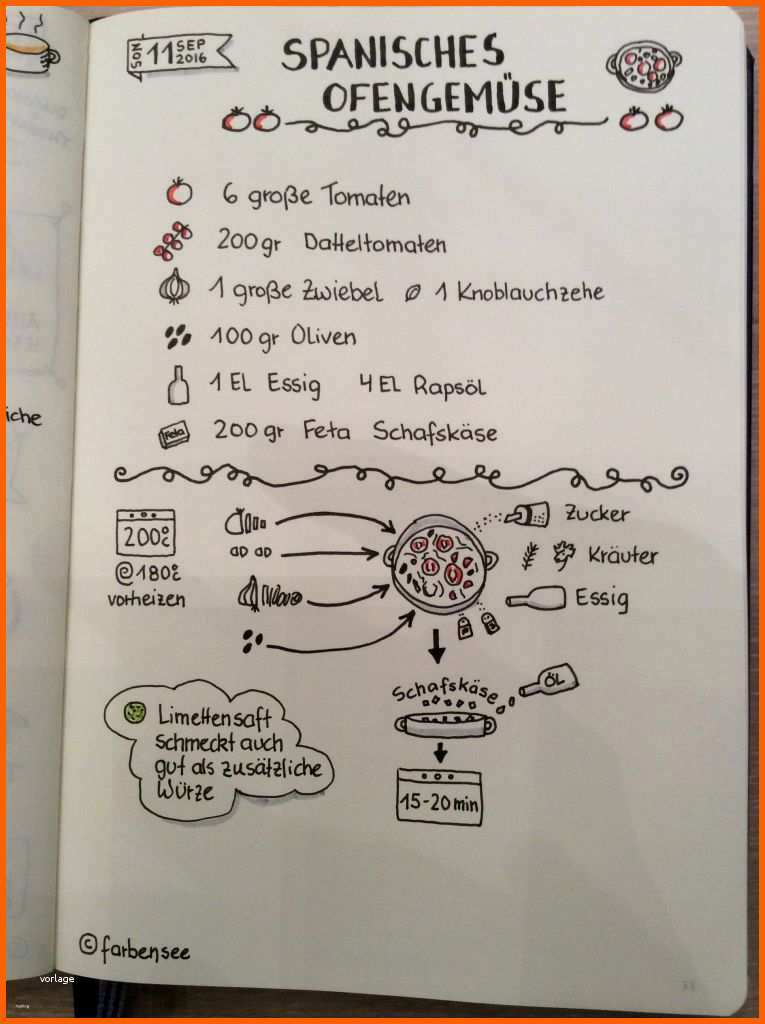 SON 11 SEP 2016
SPANISCHES
OFENGEMÜSE
6 große Tomaten
200gr Datteltomaten
1 große Zwiebel 1 Knoblauchzehe
100gr Oliven
1 EL Essig 4 EL Rapsöl
Feta 200gr Feta Schafskäse
iche
200°C
@180°C
vorheizen
Zucker
Kräuter
Essig
Schafskäse
ÖL
15-20 min
Limettensaft
schmeckt auch
gut als zusätzliche
Würze
© farbensee
vorlage